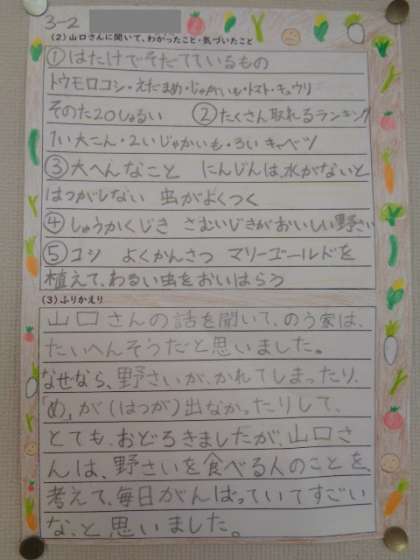 3-2
(2)山口さんに聞いて、わかったこと・気づいたこと
①はたけでそだてているもの
トウモロコシ・えだまめ・じゃがいも・トマト・キュウリ
そのた20しゅるい ②たくさん取れるランキング
1い大こん・2いじゃがいも・3いキャベツ
③大へんなこと にんじんは、水がないと
はつがしない 虫がよくつく
④しゅうかくじき さむいじきがおいしい野さい
⑤コツ よくかんさつ マリーゴールドを
植えて、わるい虫をおいはらう
(3)ふりかえり
山口さんの話を聞いて、のう家は、
たいへんそうだと思いました。
なぜなら、野さいが、かれてしまったり、
め,が(はつが)出なかったりして、
とても、おどろきましたが、山口さ
んは、野さいを食べる人のことを、
考えて、毎日がんばっていてすごい
な、と思いました。